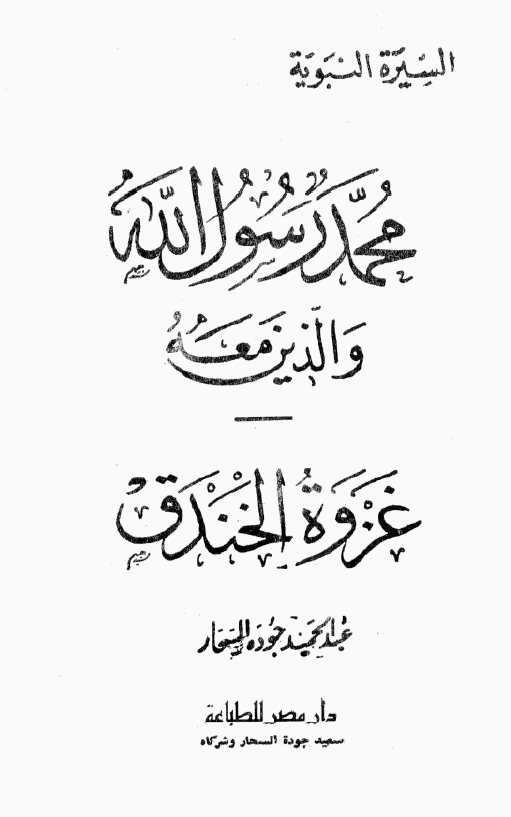 السِّيرَة النَّبَوِيَة
مُحَمَّدٌ رَسُولُ اللَّهِ
وَالَّذِينَ مَعَهُ
غَزْوَةُ الْخَنْدَقِ
عبد الحميد جوده السحار
دار مصر للطباعة
سعيد جودة السحار وشركاه